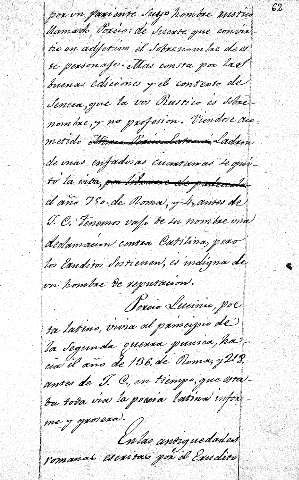 62
por un pariente suyo, hombre nuevo
llamado Porcio: de suerte que convir-
tio en adjetivo el sobrenombre de es-
te personaje. Mas consta por las
buenas ediciones y el contexto de
Seneca, que la voz Rustico es sobre-
nombre, y no profesion. Viendose aco-
metido Ladron
de unas enfadosas cuartanas se qui-
tó la vida,
el año 750 de Roma, y 4 antes de
J. C. Tenemos vajo de su nombre una
declamacion contra Catilina, pero
los Eruditos sostienen, es indigna de
un hombre de reputacion.
Porcio Lucinio, poe-
ta latino, vivia al principio de
la segunda guerra punica, ha-
cia el año de 136 de Roma, y 218
antes de J. C., en tiempo, que esta-
ba toda via la poesia latina infor-
me y grosera.
En las antiguedades
romanas escritas por el Erudito